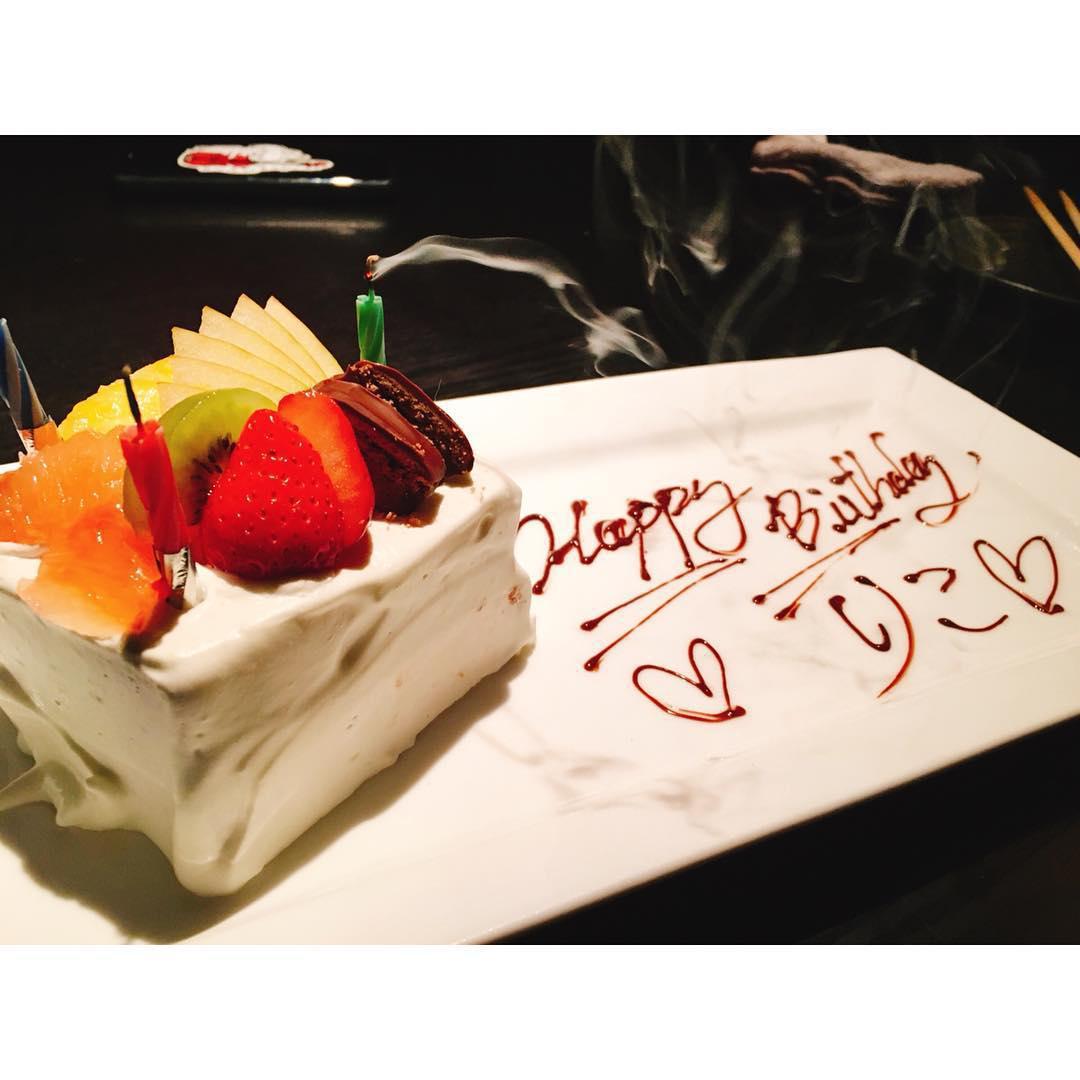 Happy Birthday
♡ りこ ♡